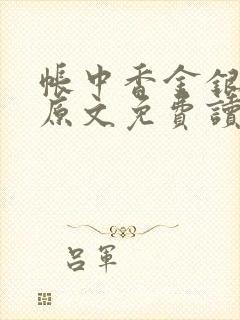 帳中香金銀
原文免費讀
呂軍